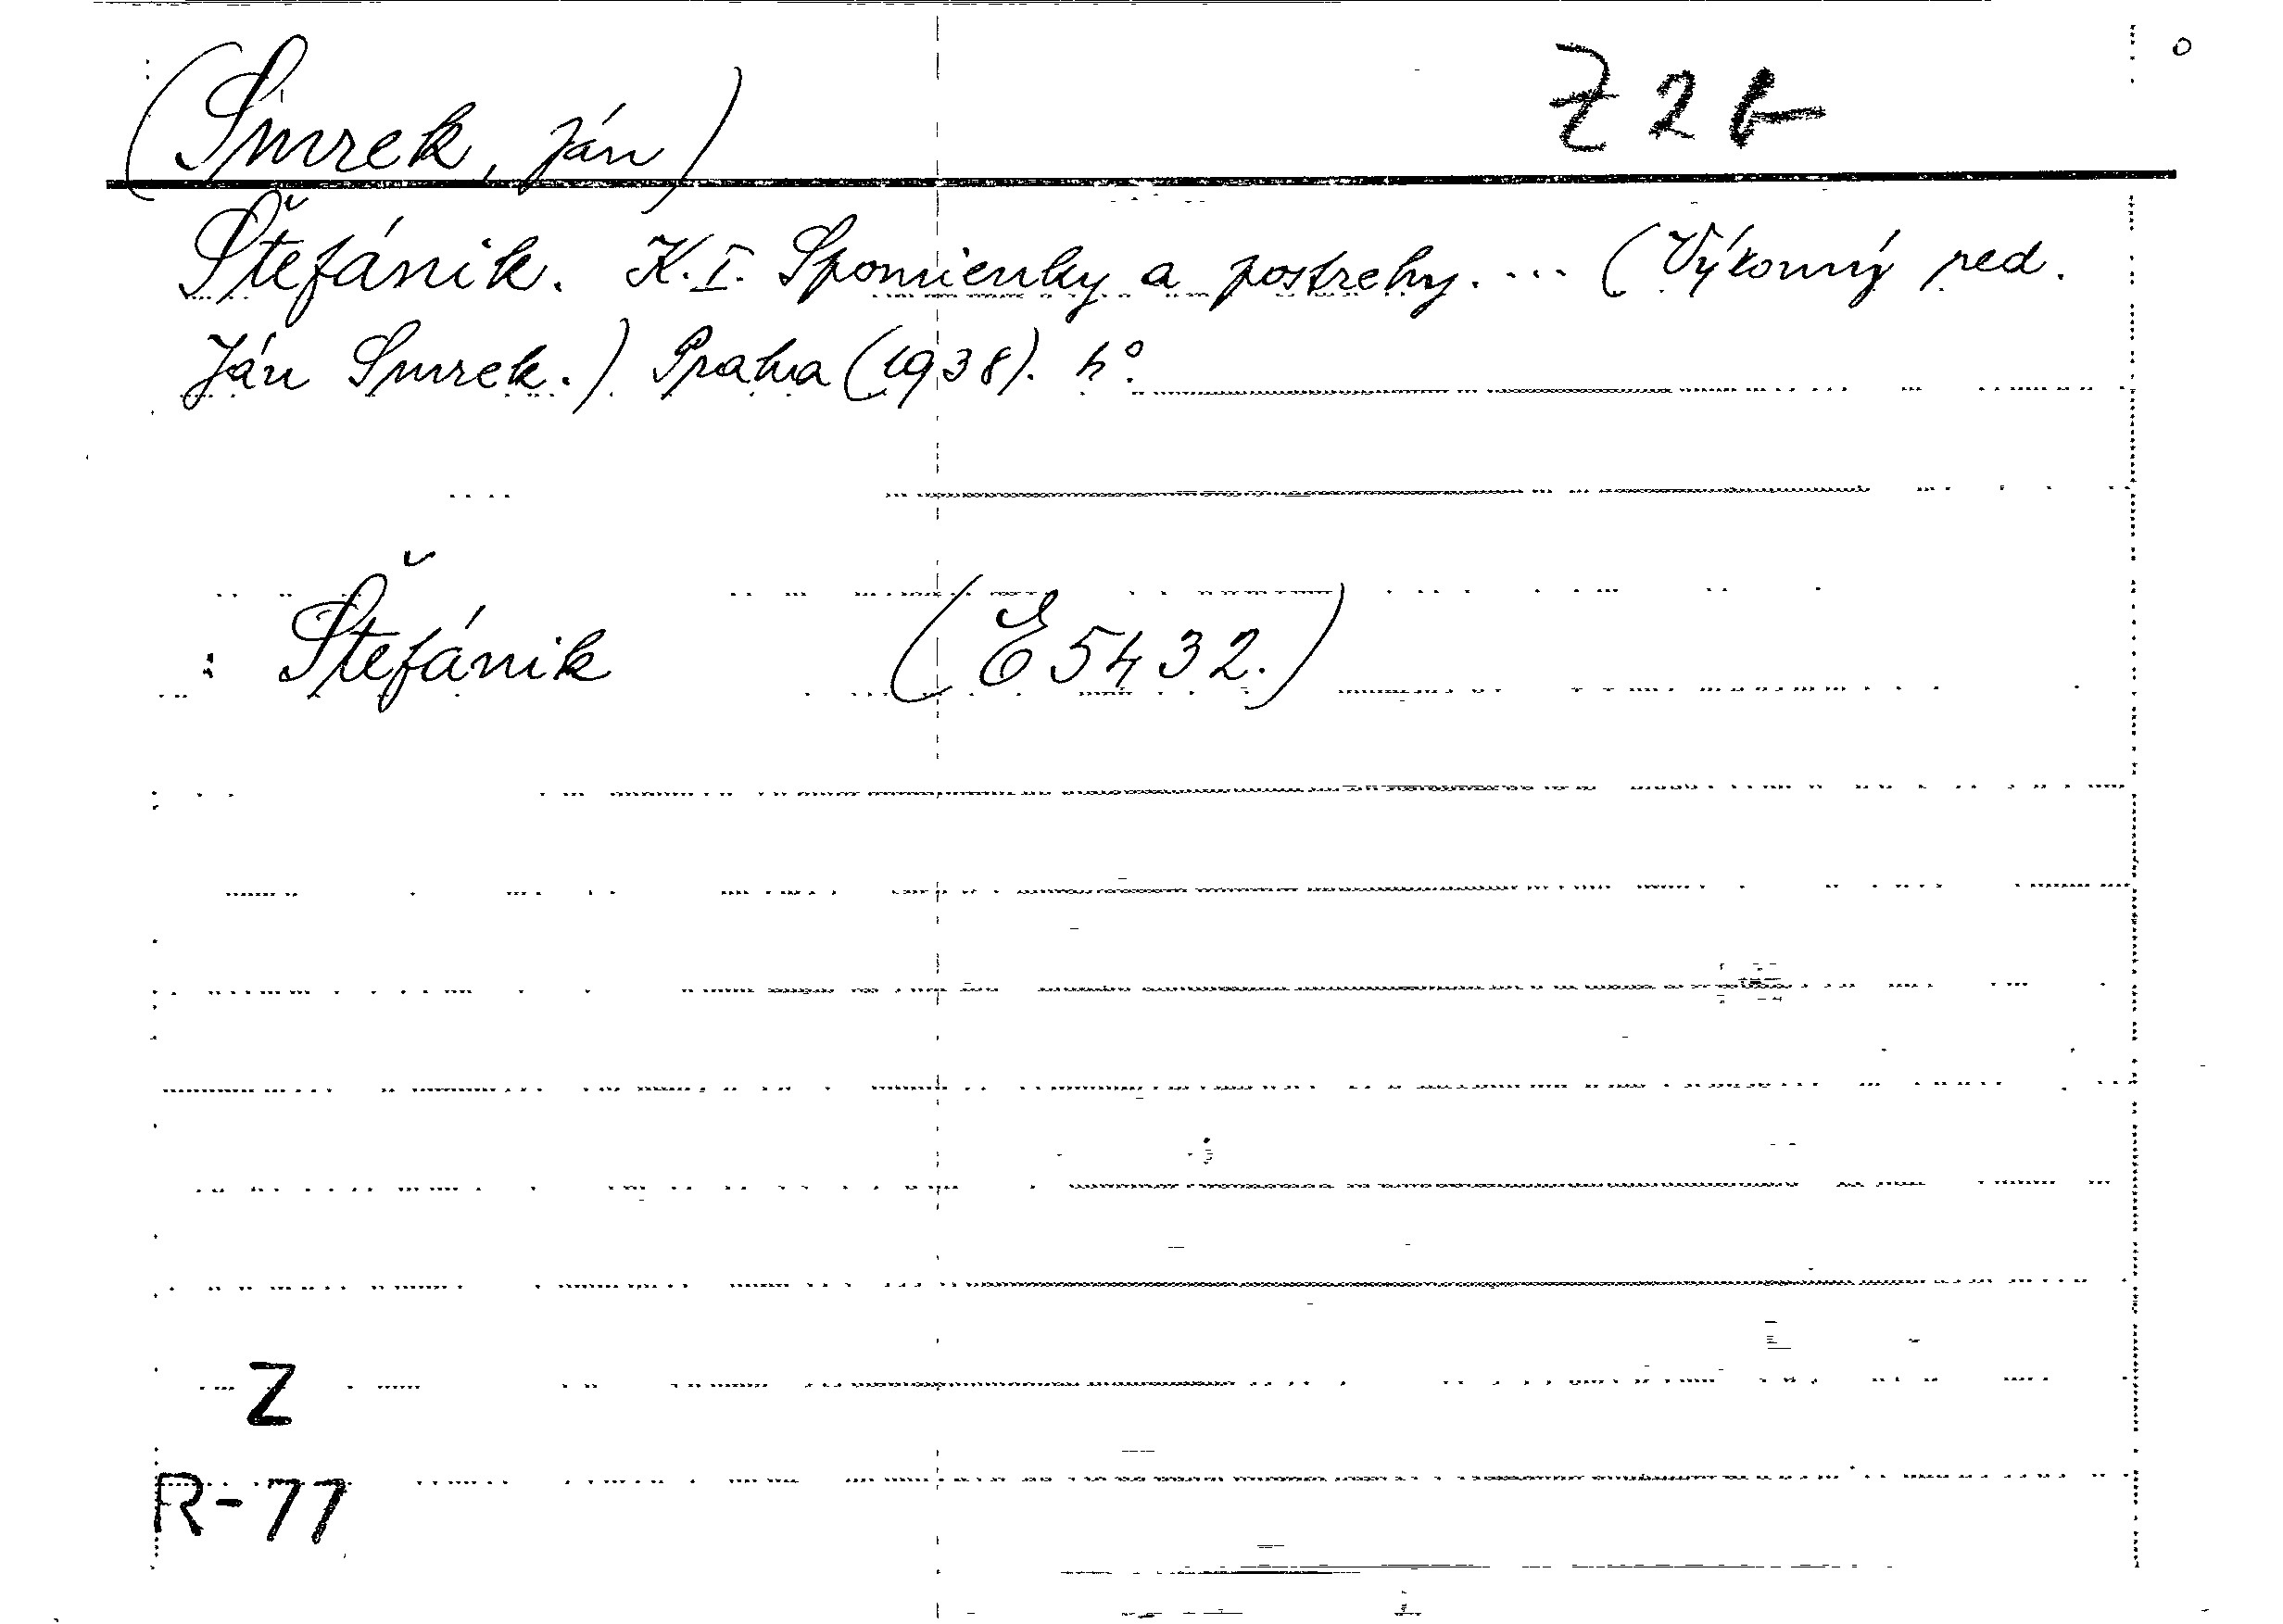 (Smrek, Ján) Z 2 b
Štefánik. K. I. Spomienky a postrehy. ... (Výkonný red.
Ján Smrek.) Praha (1938). 4°.
: Štefánik (E 5432.)
Z
R-77